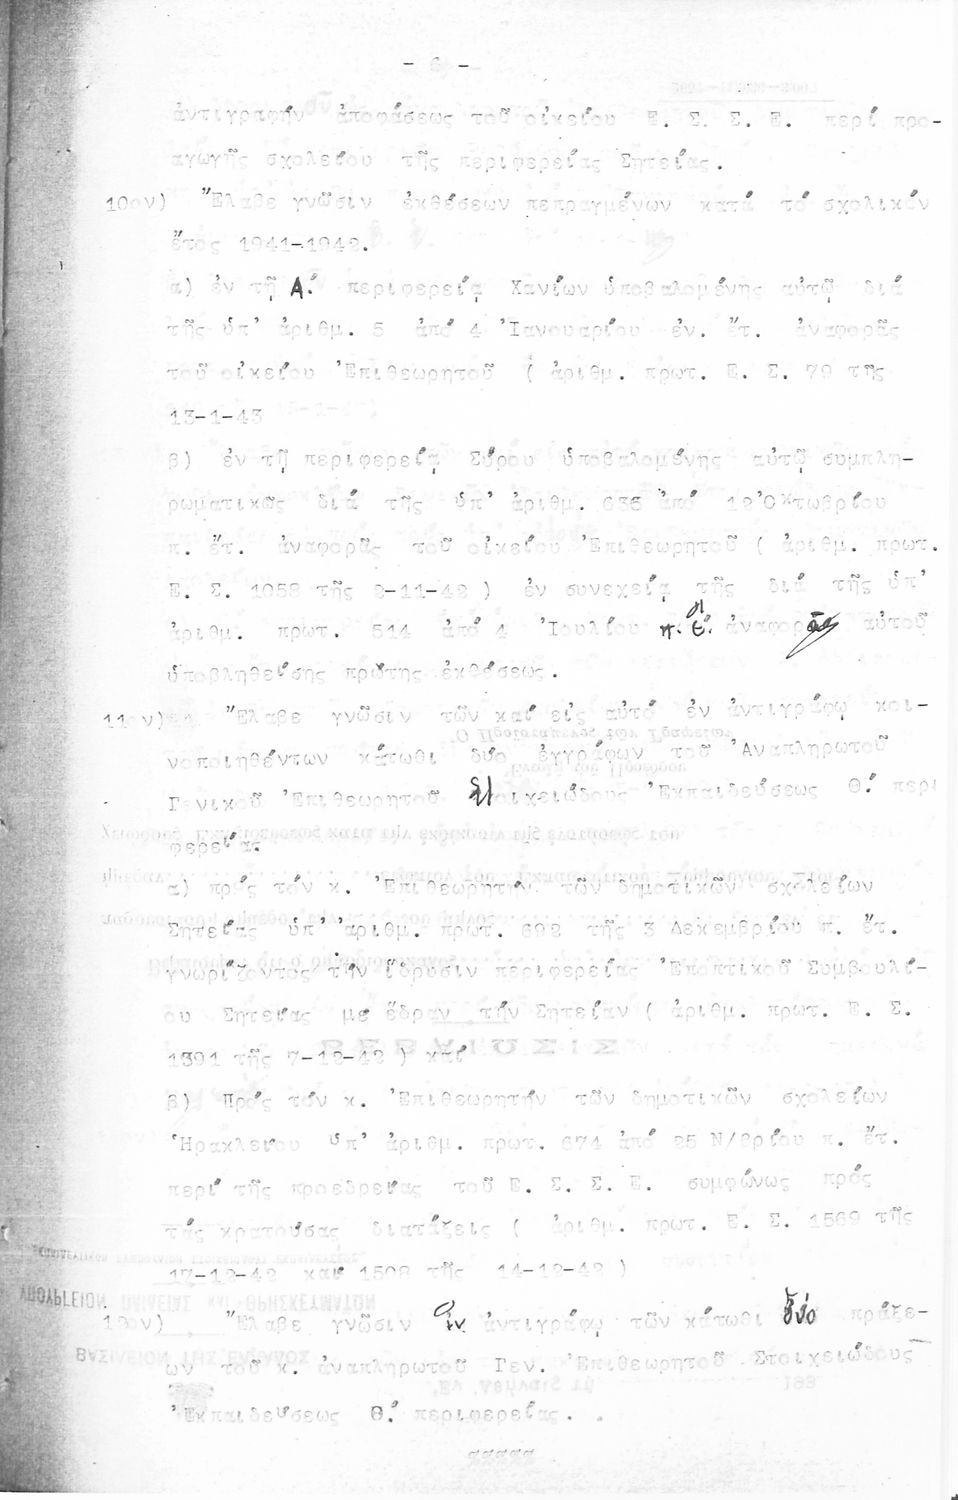 - 6 -
ἀντιγραφήν ἀποφάσεως τοῦ οἰκείου Ε. Σ. Σ. Ε. περί προ-
αγωγῆς σχολείου τῆς περιφερείας Σητείας.
10ον) Ἔλαβε γνῶσιν ἐκθέσεων πεπραγμένων κατά τό σχολικόν
ἔτος 1941-1942.
α) ἐν τῇ Α΄ περιφερείᾳ Χανίων ὑποβαλομένης αὐτῷ διά
τῆς ὑπ' ἀριθμ. 5 ἀπό 4 Ἰανουαρίου ἐν. ἔτ. ἀναφορᾶς
τοῦ οἰκείου Ἐπιθεωρητοῦ ( ἀριθμ. πρωτ. Ε. Σ. 79 τῆς
13-1-43
β) ἐν τῇ περιφερείᾳ Σύρου ὑποβαλομένης αὐτῷ συμπλη-
ρωματικῶς διά τῆς ὑπ' ἀριθμ. 636 ἀπό 12 Ὀκτωβρίου
π. ἔτ. ἀναφορᾶς τοῦ οἰκείου Ἐπιθεωρητοῦ ( ἀριθμ. πρωτ.
Ε. Σ. 1058 τῆς 2-11-42 ) ἐν συνεχείᾳ τῆς διά τῆς ὑπ'
ἀριθμ. πρωτ. 514 ἀπό 4 Ἰουλίου π. ἔ. ἀναφορᾶς αὐτοῦ
ὑποβληθείσης πρώτης ἐκθέσεως.
11ον) Ἔλαβε γνῶσιν τῶν καί εἰς αὐτό ἐν ἀντιγράφῳ κοι-
νοποιηθέντων κάτωθι δύο ἐγγράφων τοῦ Ἀναπληρωτοῦ
Γενικοῦ Ἐπιθεωρητοῦ Στοιχειώδους Ἐκπαιδεύσεως Θ΄ περι
φερείας
α) πρός τόν κ. Ἐπιθεωρητήν τῶν δημοτικῶν σχολείων
Σητείας ὑπ' ἀριθμ. πρωτ. 692 τῆς 3 Δεκεμβρίου π. ἔτ.
γνωρίζοντος τήν ἵδρυσιν περιφερείας Ἐποπτικοῦ Συμβουλί-
ου Σητείας με ἕδραν τήν Σητείαν ( ἀριθμ. πρωτ. Ε. Σ.
1391 τῆς 7-12-42 ) καί
β) Πρός τόν κ. Ἐπιθεωρητήν τῶν δημοτικῶν σχολείων
Ἡρακλείου ὑπ' ἀριθμ. πρωτ. 674 ἀπό 25 Ν/βρίου π. ἔτ.
περί τῆς προεδρείας τοῦ Ε. Σ. Σ. Ε. συμφώνως πρός
τάς κρατούσας διατάξεις ( ἀριθμ. πρωτ. Ε. Σ. 1569 τῆς
17-12-42 καί 1508 τῆς 14-12-42 )
12ον) Ἔλαβε γνῶσιν ἐν ἀντιγράφῳ τῶν κάτωθι δύο πράξε-
ων τοῦ κ. ἀναπληρωτοῦ Γεν. Ἐπιθεωρητοῦ Στοιχειώδους
Ἐκπαιδεύσεως Θ΄ περιφερείας.